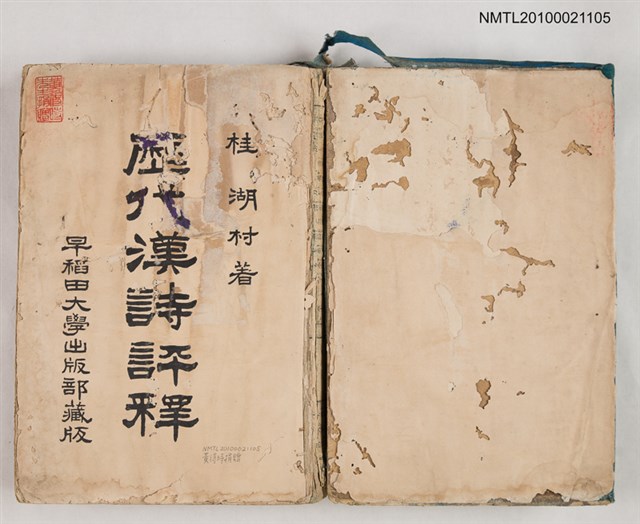 NMTL20100021105
桂湖村着
歴代漢詩評釋
早稻田大學出版部藏版
NMTL20100021105